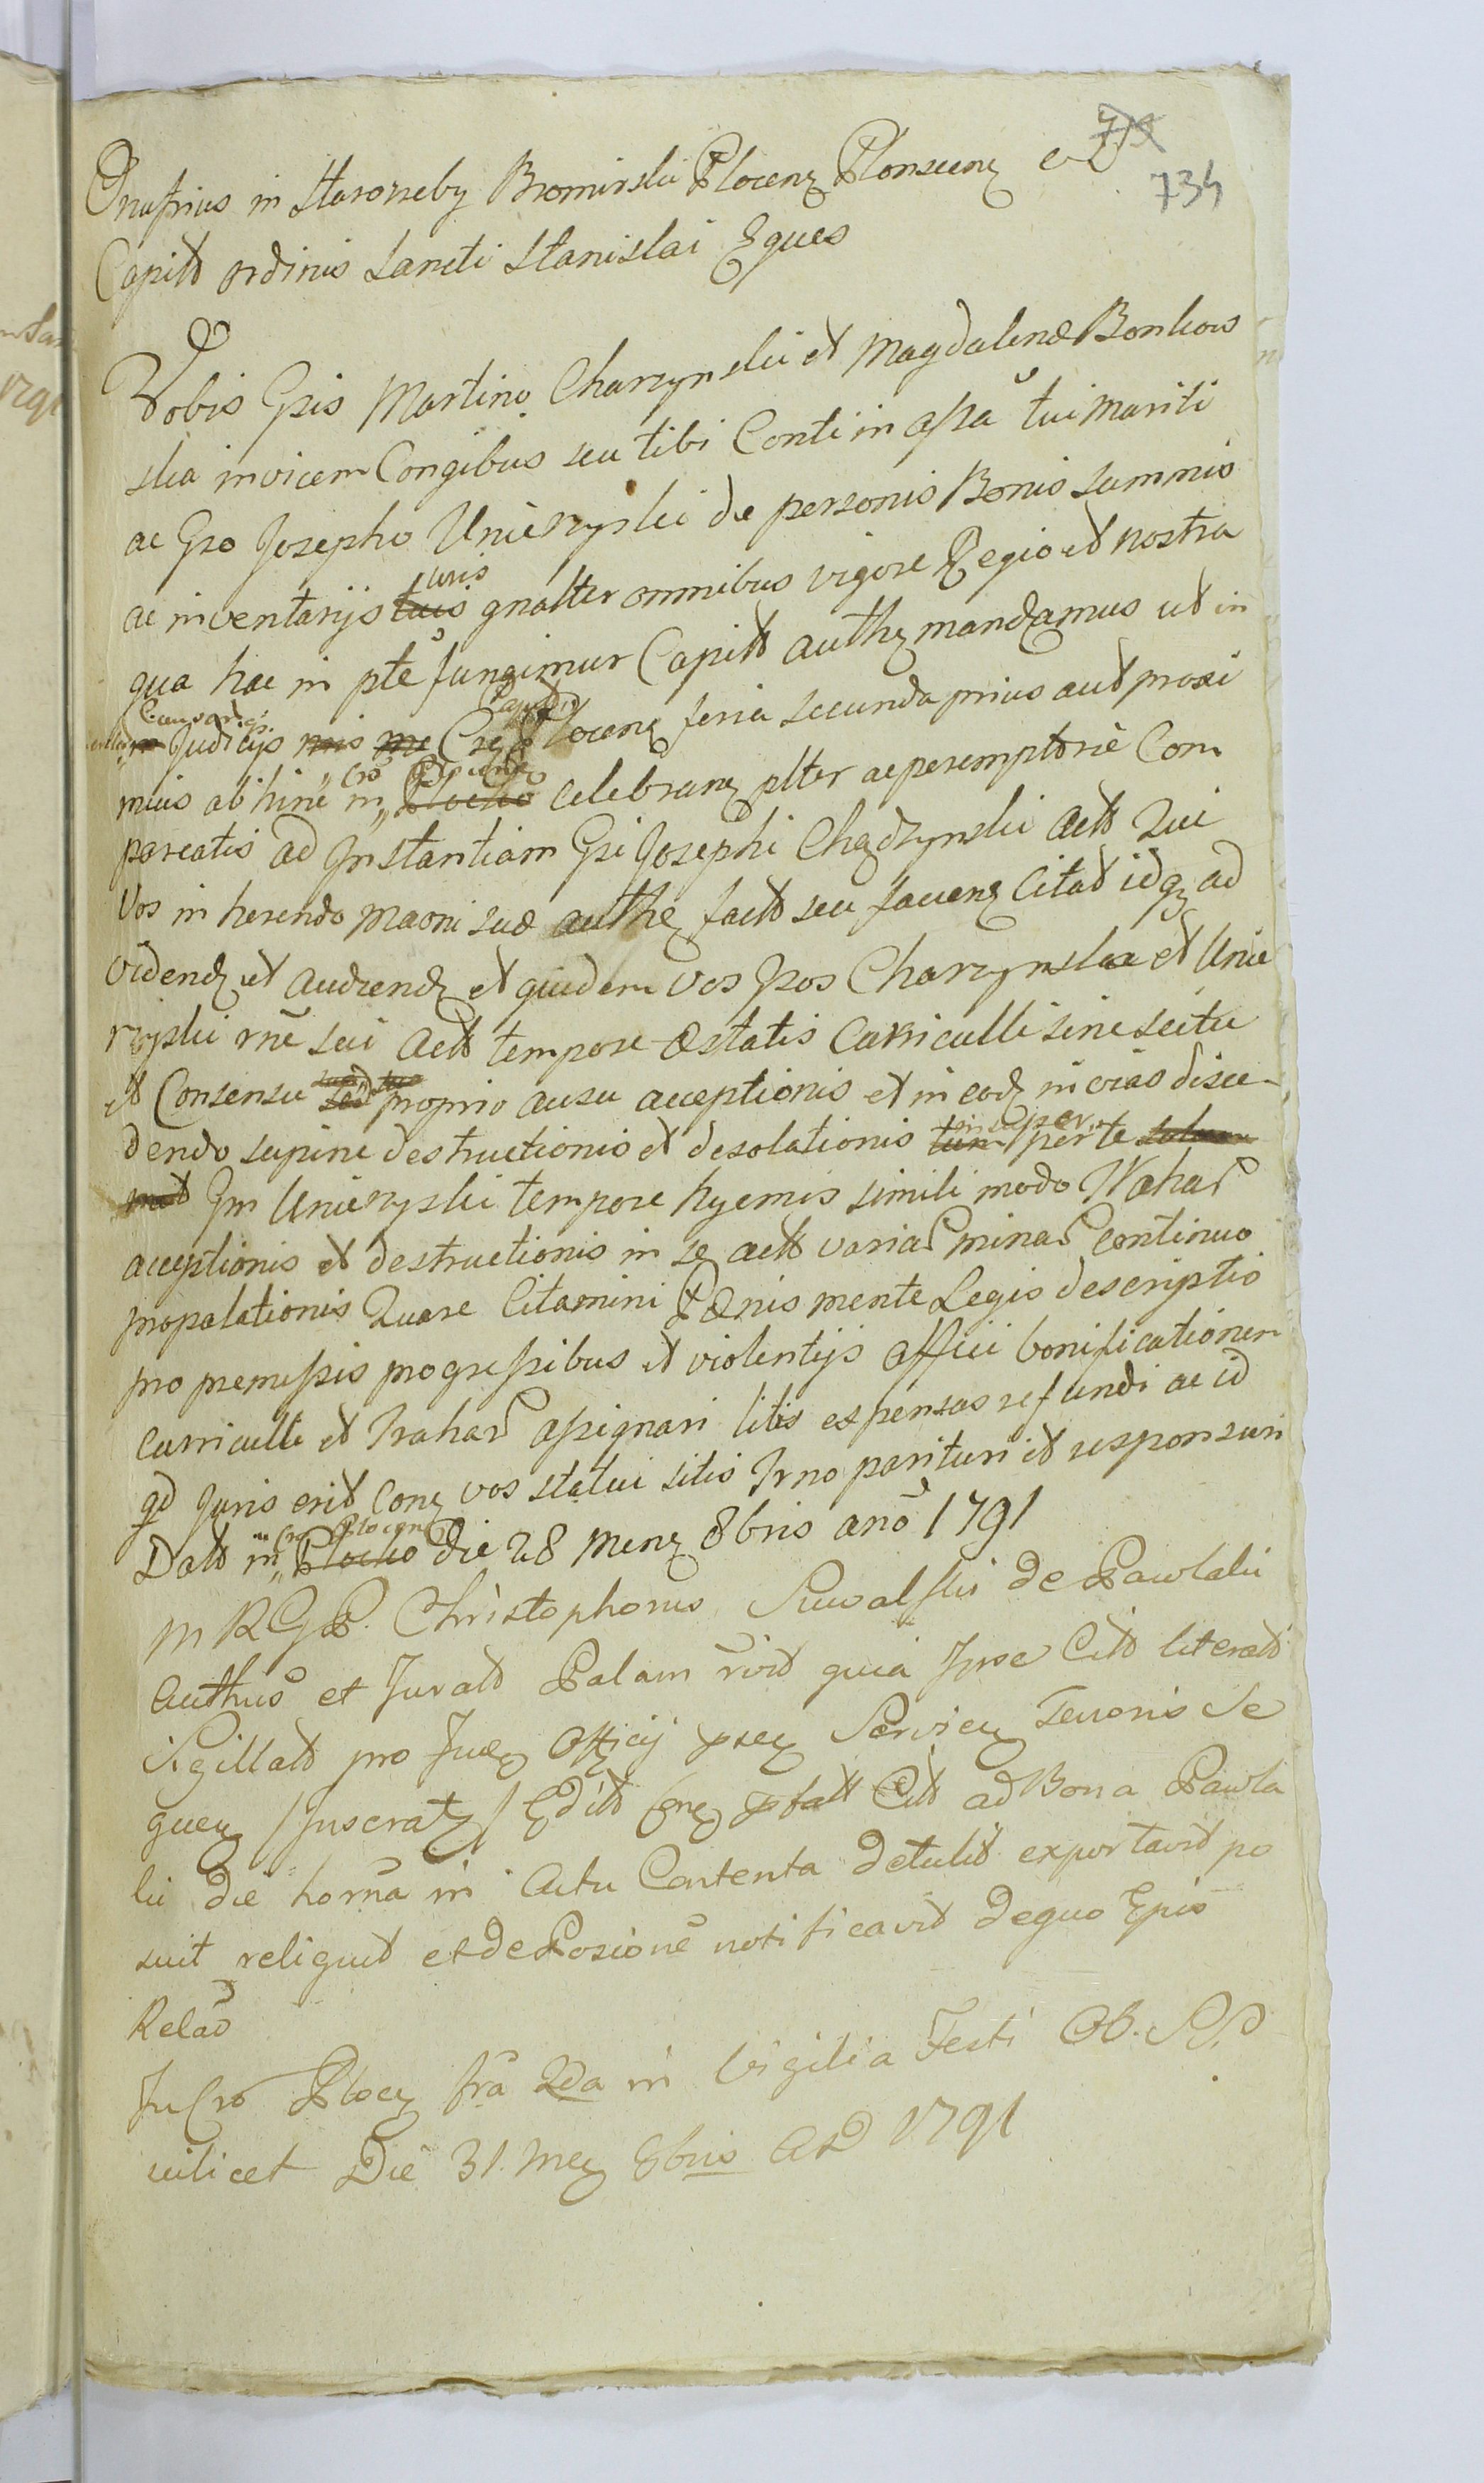 734
Onufrius in Starorzeby Bromirski Plocenz Plonscenz et
Capitt ordinis Sancti Stanislai Eques
Vobis Gsis Martino Charzynski et Magdalenæ Bonkow
ska invicem Congibus seu tibi Conti in assa tui mariti
ac Gso Josepho Unierzyski de personis Bonis summis
ac inventarijs uris gnalter omnibus vigore Regio et nostra
qua hac in pte fungimur Capitt authz mandamus ut in
Judicijs Plocenz feria secunda prius aut proxi
mius ab hinc in Cro Plocenz celebranz plter ac peremptorie Com
pareatis ad Instantiam Gsi Josephi Chądzynski actt Qui
Vos in herendo maoni suæ authz factt seu facienz Citat idqz ad
videndz et audiendz et quidem vos Gsos Charzynskie et Unie
rzyski rne sui actt tempore æstatis Curriculli sine scitu
et Consensu proprio ausu acceptionis et in eodz in vias disce-
dendo supine destructionis et desolationis insuper per te
Gm Unierzyski tempore hyemis simili modo Trahas
acceptionis et destructionis in se actt varias minas continuo
propalationis Quare Citamini Pænis mente Legis descriptis
pro premissis progressibus et violentijs affici bonificationem
curriculli et Trahas assignari litis expensas refundi ac id
qd Juris erit Conz vos statui sitis Trno parituri et responsuri
Datt in Cro Plocenz die 28 menz 8bris ano 1791
M R G P. Christophorus Suwalski de Pawlaki
Authus et Juratt Palam rvit quia Ipse Citt literatt
Sigillatt pro Juez Officij psez Serviez Tenoris Se
quez /Inseratz/ Editt Conz psatt Citt ad Bona Pawla
ki die horna in Actu Contenta detulit exportavit po
suit reliquit et de Posicione notificavit de quo Epis
Relao
In Cro Plocz fra 2da in Vigilia Festi Ob. SSr
scilicet Die 31 Mez 8bris AD 1791